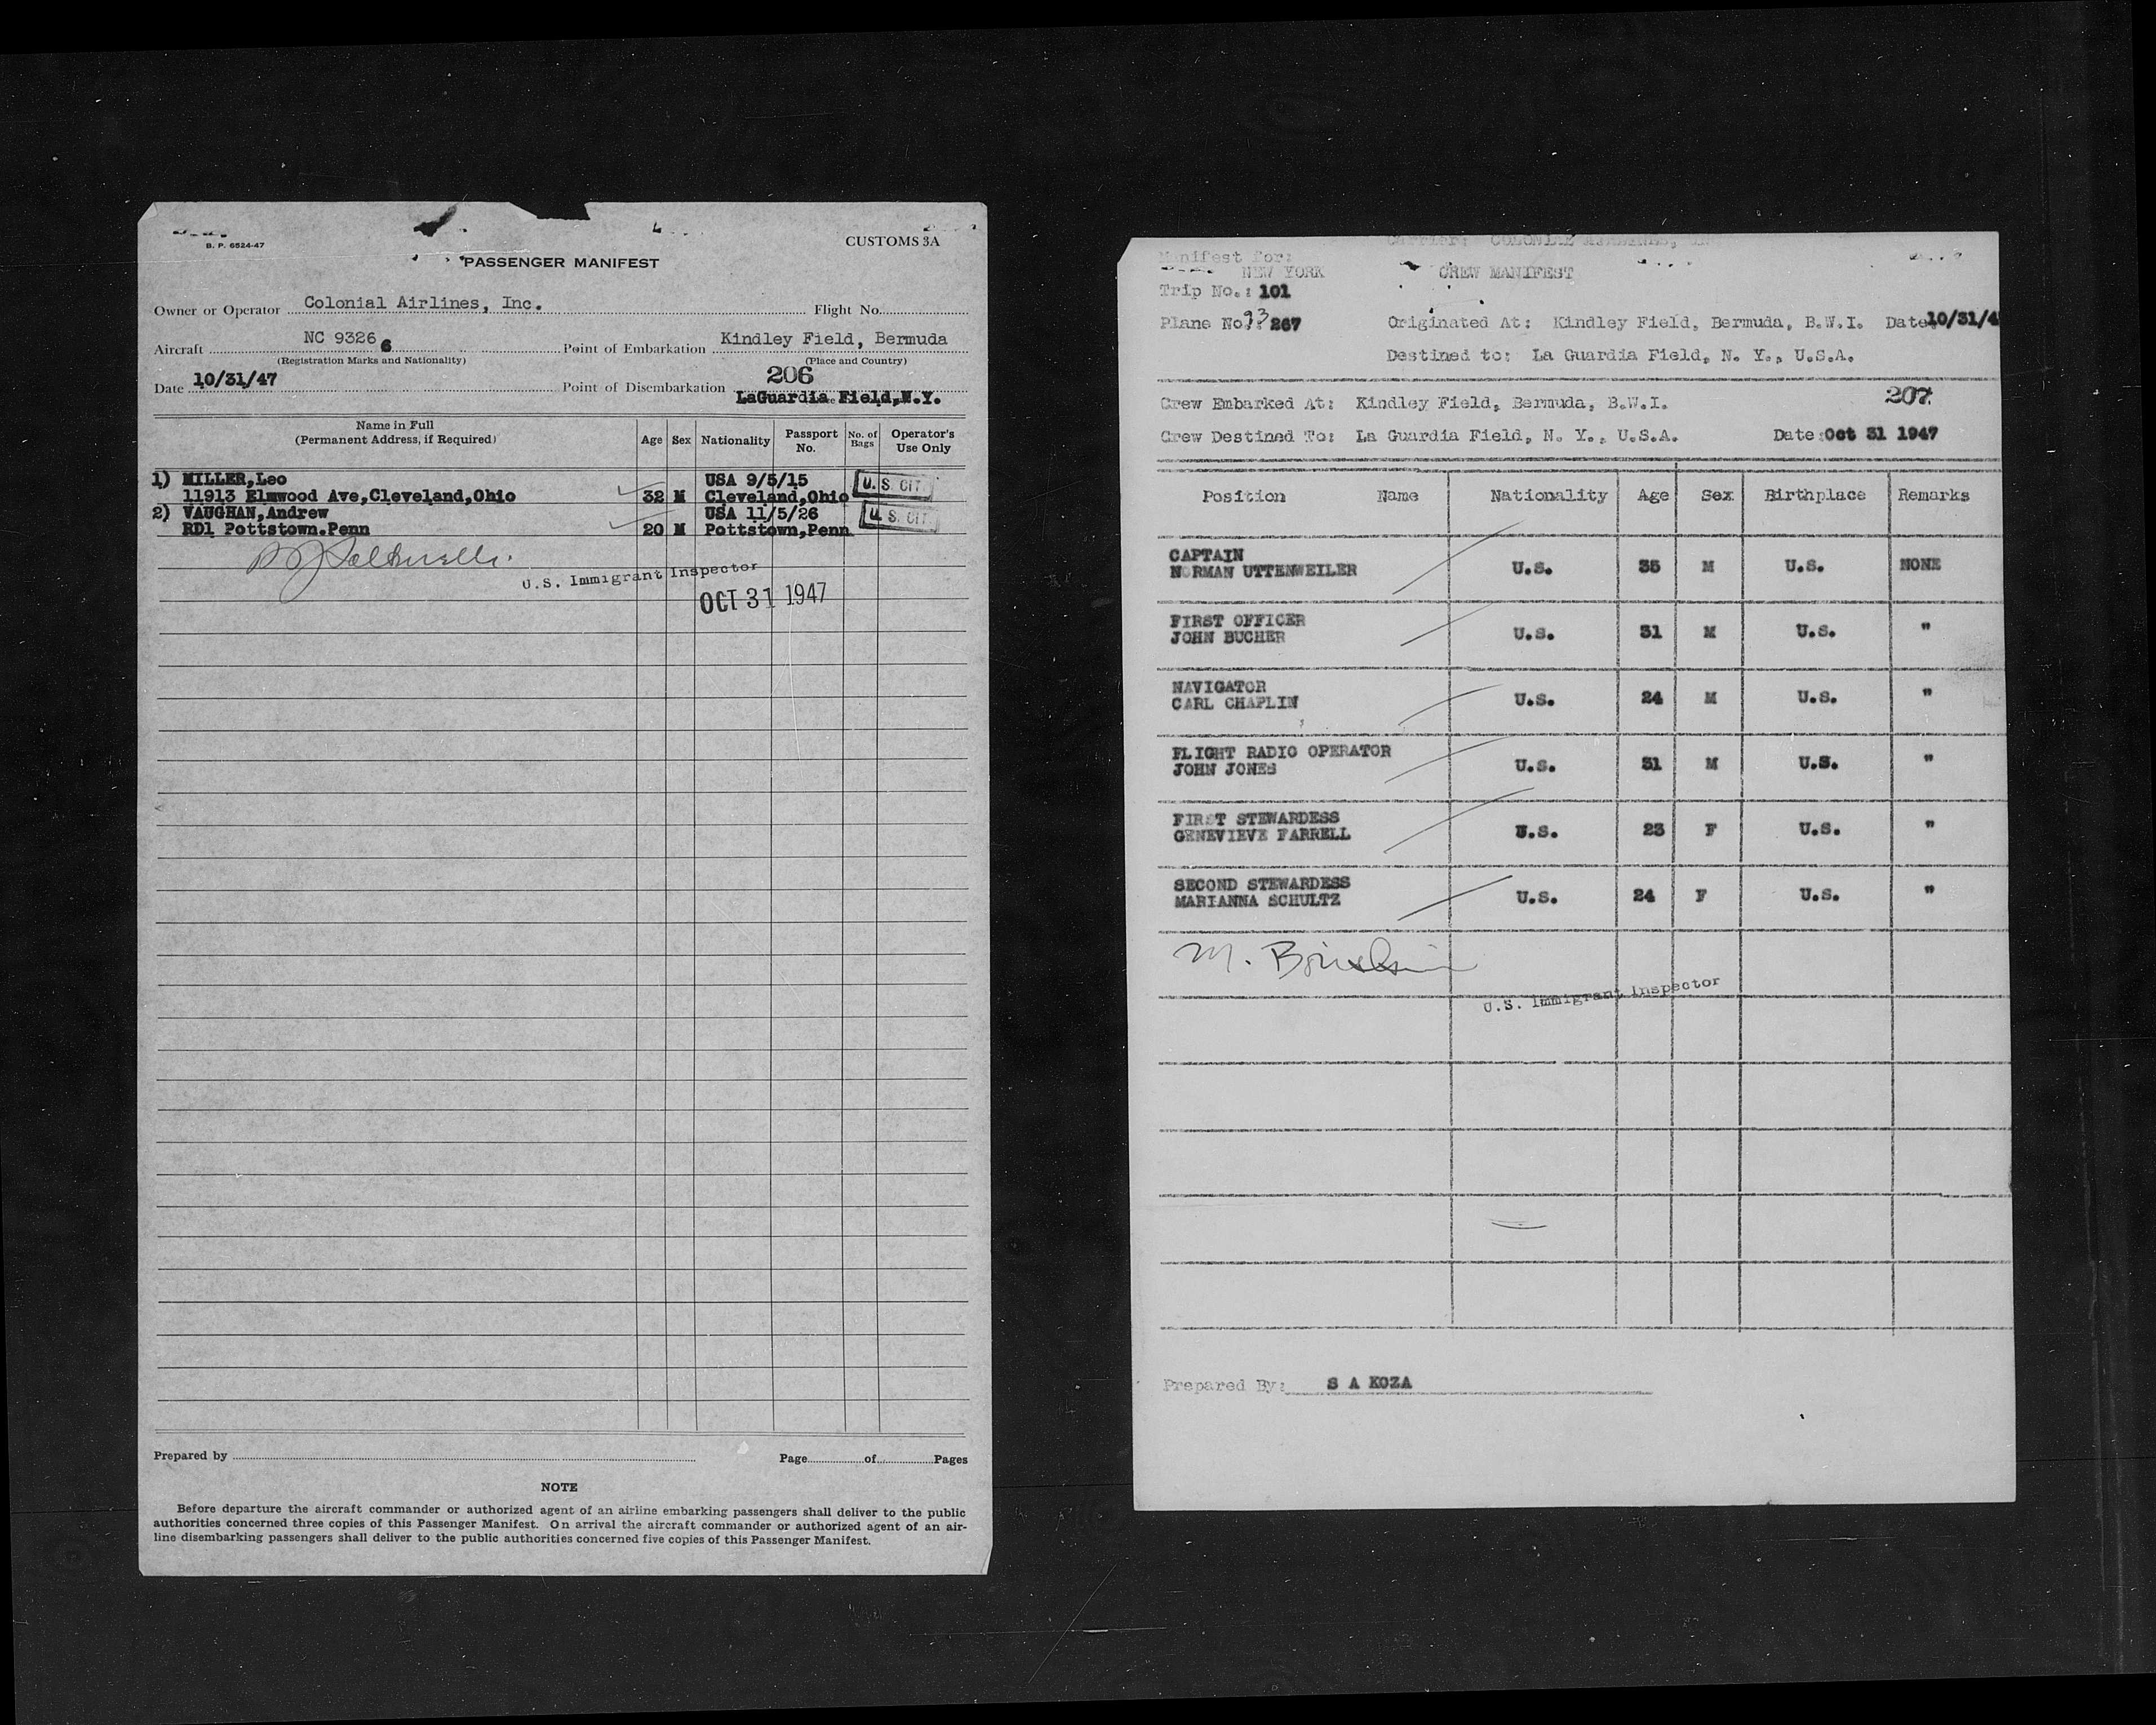 B. P. 6524-47
CUSTOMS 3A
PASSENGER MANIFEST
Owner or Operator Colonial Airlines, Inc. Flight No.
Aircraft NC 9326 6 Point of Embarkation Kindley Field, Bermuda
(Registration Marks and Nationality) (Place and Country)
206
Date 10/31/47 Point of Disembarkation LaGuardia Field,N.Y.
Name in Full
(Permanent Address, if Required) Age Sex Nationality Passport No. No. of Bags Operator's Use Only
1) MILLER,Leo USA 9/5/15 U. S. CIT.
11913 Elmwood Ave,Cleveland,Ohio 32 M Cleveland,Ohio
2) VAUGHAN,Andrew USA 11/5/26 U. S. CIT.
RD1 Pottstown.Penn 20 M Pottstown,Penn
U.S. Immigrant Inspector
OCT 31 1947
Prepared by Page of Pages
NOTE
Before departure the aircraft commander or authorized agent of an airline embarking passengers shall deliver to the public
authorities concerned three copies of this Passenger Manifest. On arrival the aircraft commander or authorized agent of an air-
line disembarking passengers shall deliver to the public authorities concerned five copies of this Passenger Manifest.
Carrier: COLONIAL AIRLINES,
Manifest for:
NEW YORK CREW MANIFEST
Trip No.: 101
Plane No.: 93 267 Originated At: Kindley Field, Bermuda, B.W.I. Date 10/31/4
Destined to: La Guardia Field, N. Y., U.S.A.
207
Crew Embarked At: Kindley Field, Bermuda, B.W.I.
Crew Destined To: La Guardia Field, N. Y., U.S.A. Date:Oct 31 1947
Position Name Nationality Age Sex Birthplace Remarks
CAPTAIN
NORMAN UTTENWEILER U.S. 35 M U.S. NONE
FIRST OFFICER
JOHN BUCHER U.S. 31 M U.S. "
NAVIGATOR
CARL CHAPLIN U.S. 24 M U.S. "
FLIGHT RADIO OPERATOR
JOHN JONES U.S. 31 M U.S. "
FIRST STEWARDESS
GENEVIEVE FARRELL U.S. 23 F U.S. "
SECOND STEWARDESS
MARIANNA SCHULTZ U.S. 24 F U.S. "
M.
U.S. Immigrant Inspector
Prepared By: S A KOZA